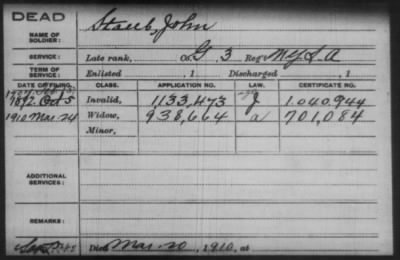 DEAD
NAME OF SOLDIER: Staub, John
SERVICE: Late rank, Co. G 3 Reg't N.Y. L. A
TERM OF SERVICE: Enlisted , 1 Discharged , 1
DATE OF FILING. CLASS. APPLICATION NO. LAW. CERTIFICATE NO.
1892. Oct 5 Invalid, 1,133,473 J 1.040,944
1910 Mar. 24 Widow, 938,664 a 701,084
Minor,
ADDITIONAL SERVICES:
REMARKS:
Died Mar. 20, 1910, at